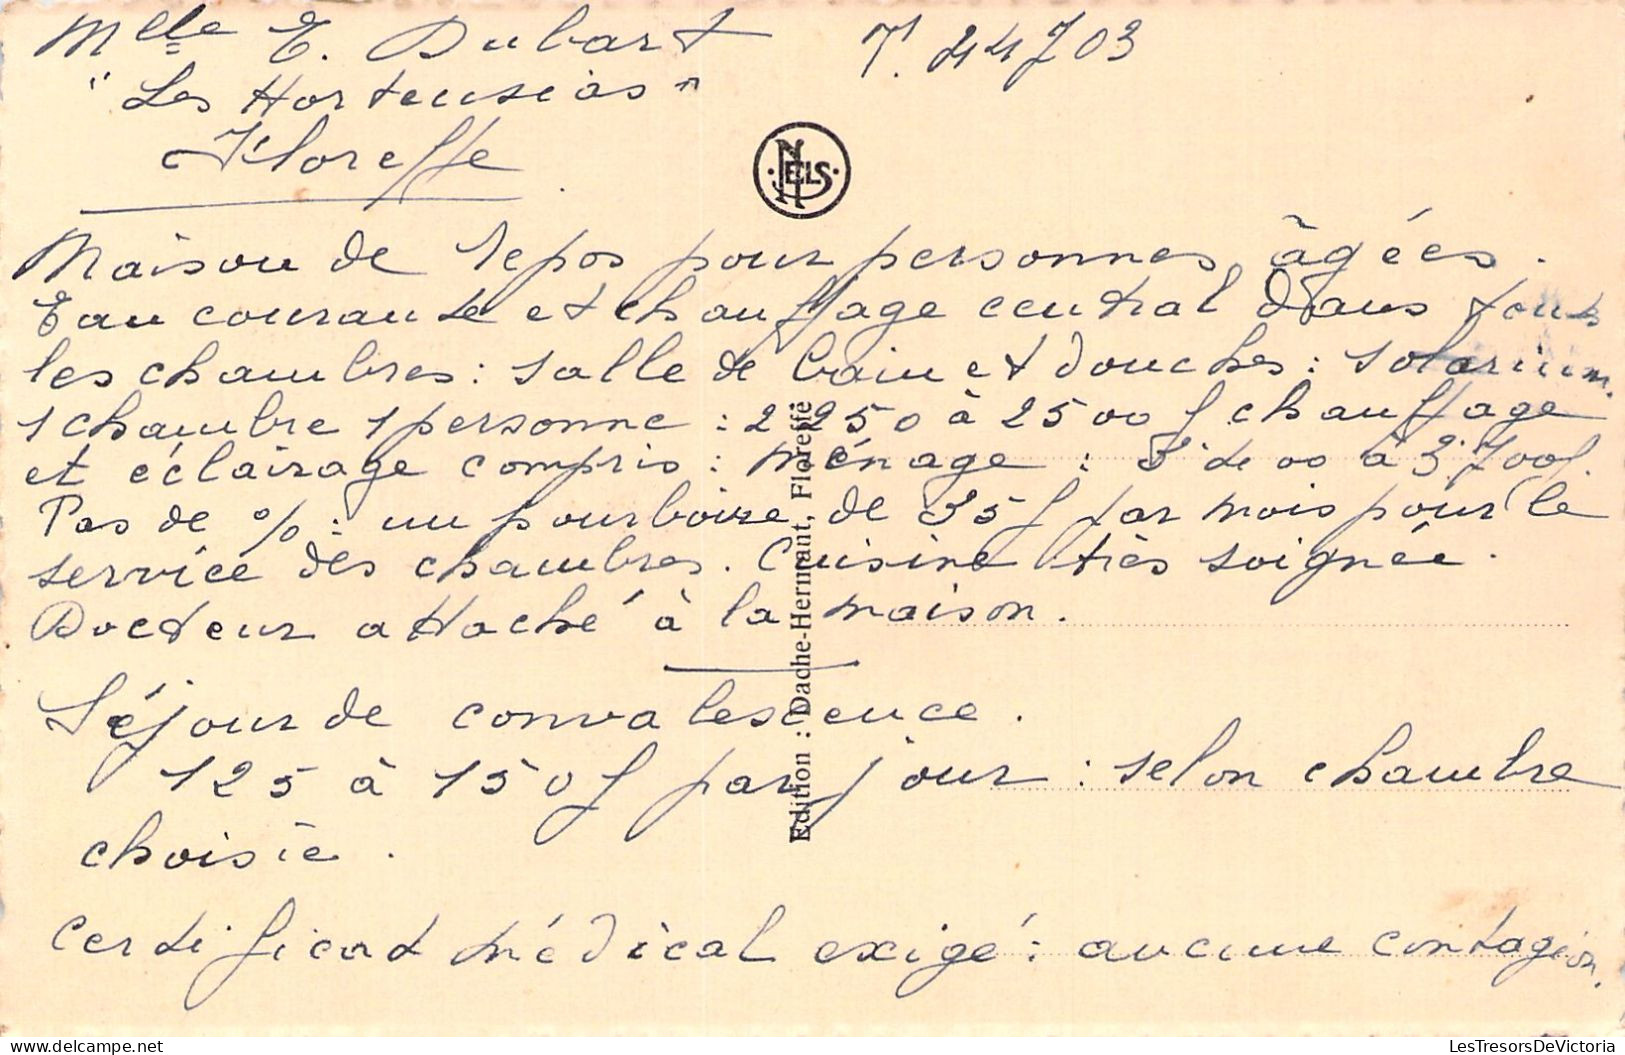 Mlle E. Dubart T. 44703
"Les Hortensias"
Floreffe
NELS
Maison de repos pour personnes âgées.
Eau courante et chauffage central dans tout
les chambres : salle de bain et douches : solarium.
1 chambre 1 personne : 2250 à 2500 f chauffage
et éclairage compris : ménage : à 3700f.
Pas de % : un pourboire de 35 f par mois pour le
service des chambres. Cuisine très soignée.
Docteur attaché à la maison.
Séjour de convalescence.
125 à 150 f par jour : selon chambre
choisie.
Certificat médical exigé : aucune contagion.
Edition : Dache-Hermant, Floreffe
LesTresorsDeVictoria